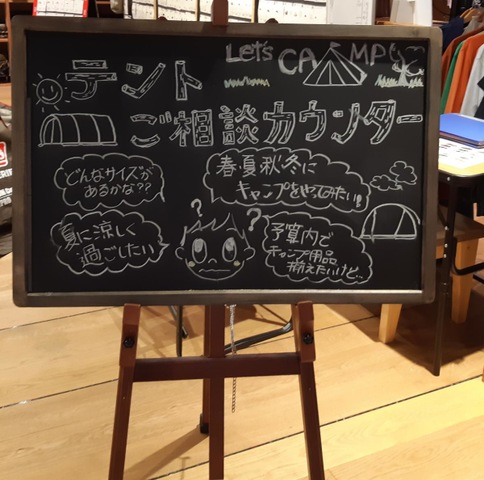 Let's CAMP!
テント
ご相談カウンター
どんなサイズが
あるかな??
春夏秋冬に
キャンプをやってみたい!!
夏に涼しく
過ごしたい
? ?
予算内で
キャンプ用品
揃えたいけど…